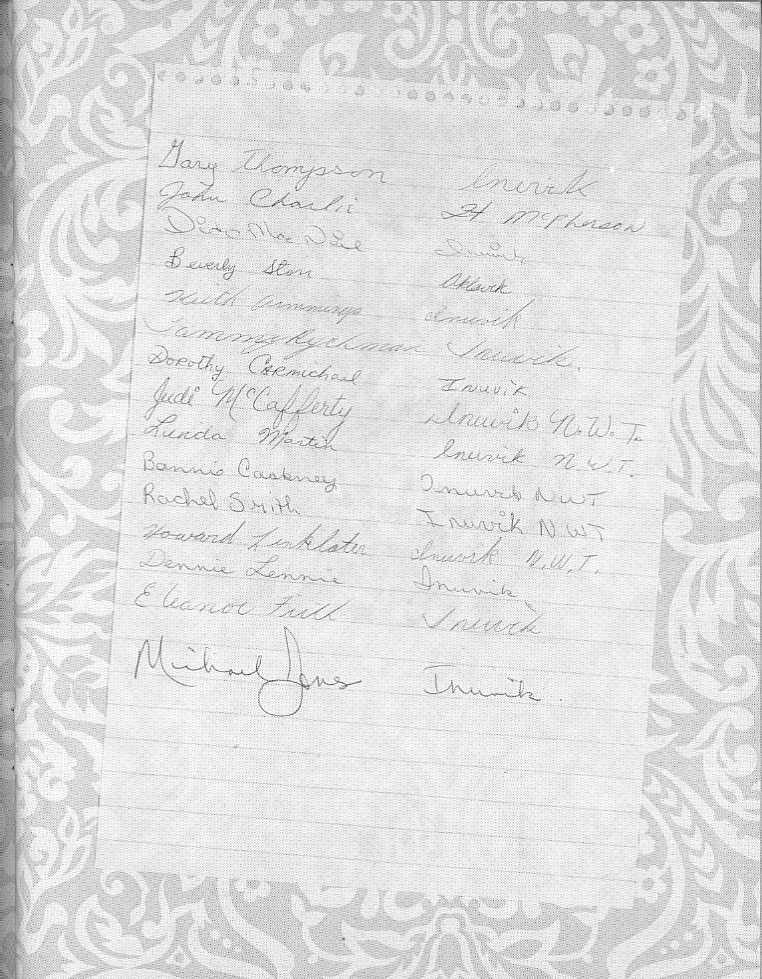 Gary Thompson Inuvik
John Charlie Ft McPherson
Mac Neil Inuvik
Beverly Aklavik
Keith Cummings Inuvik
Tammy Ryckman Inuvik.
Dorothy Carmichael Inuvik
Judi McCafferty Inuvik N.W.T.
Lunda Martin Inuvik N.W.T.
Bonnie Inuvik NWT
Rachel Smith Inuvik N.WT
Howard Linklater Inuvik N.W.T.
Dennis Lennie Inuvik
Eleanor Inuvik
Michael Jones Inuvik.